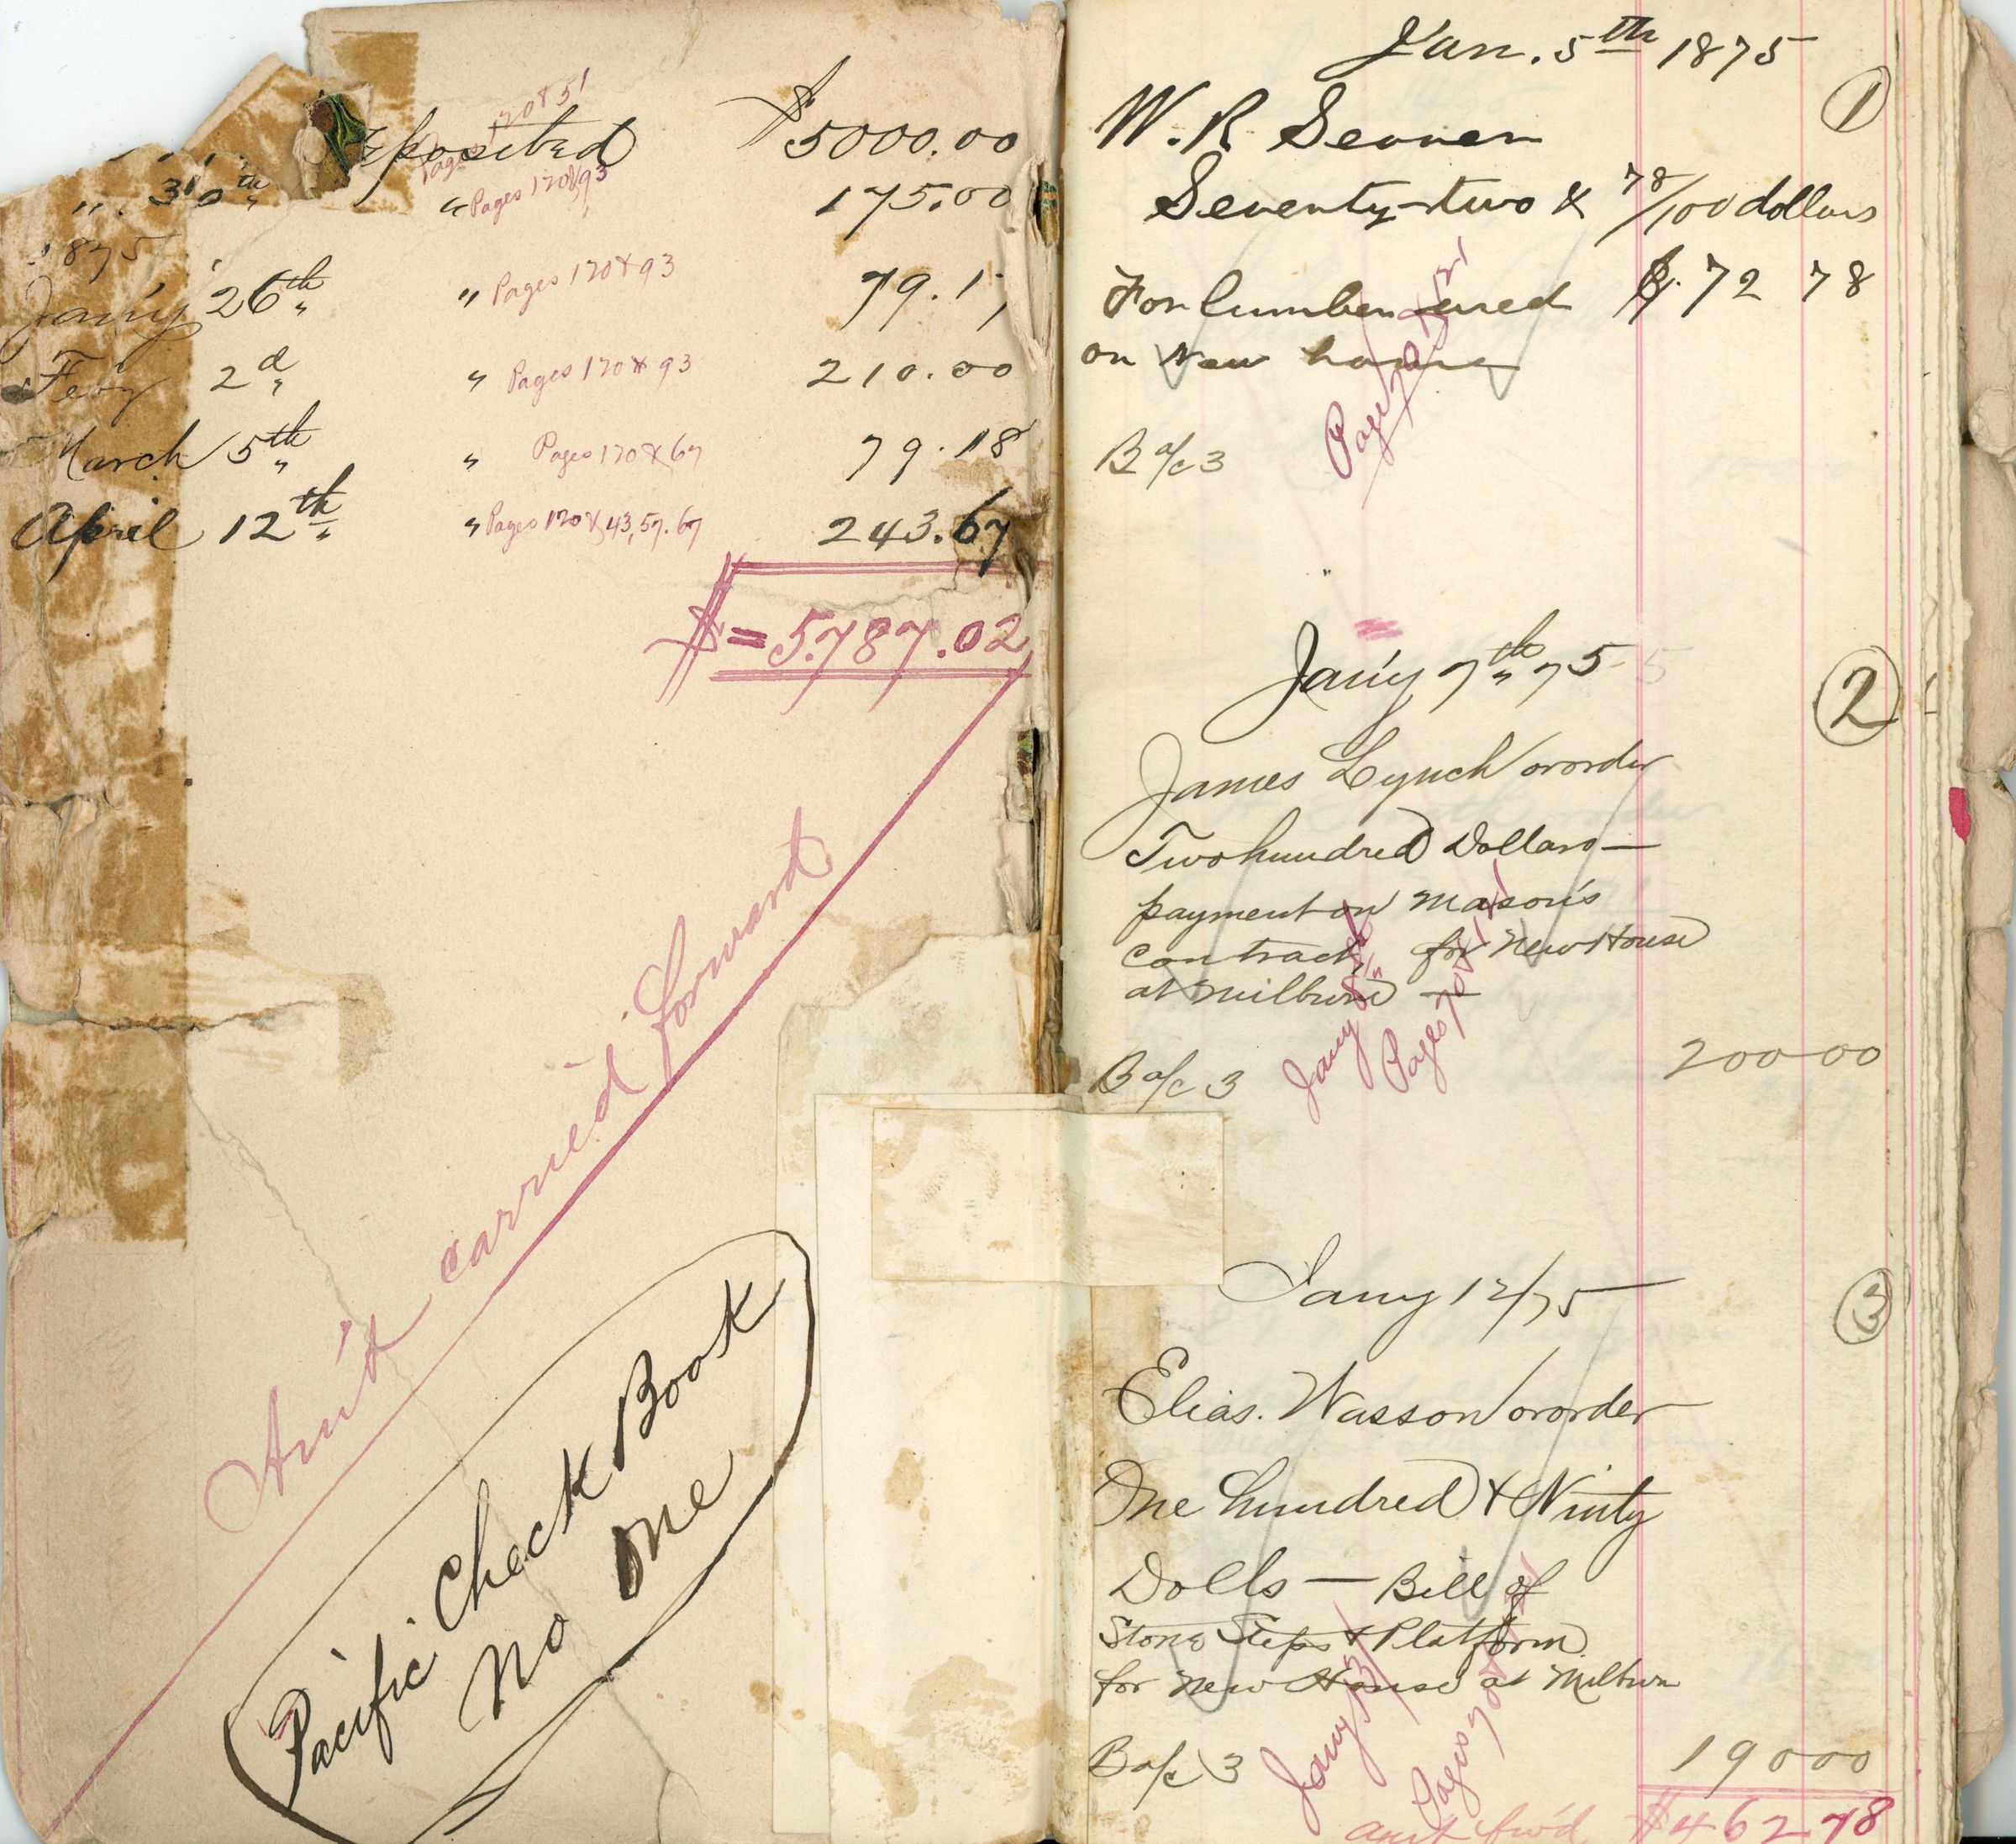 eposited $5000.00
Pages 170 & 51
" 30th " Pages 170 & 93 175.00
1875
Jan'y 26th " Pages 170 & 93 79.17
Feb'y 2d " Pages 170 & 93 210.00
March 5th " Pages 170 & 67 79.18
April 12th " Pages 170 & 43, 57. 67 243.67
$ = 5.787.02
Am't carried forward
Pacific Check Book
No One
Jan. 5th 1875
1
W. R.
Seventy-two & 78/100 dollars
For lumber used $. 72 78
on New house
B a/c 3
Jan'y 7th 75
2
James Lynch or order
Two hundred Dollars —
payment on Mason's
Contract, for New House
at Milburn —
B a/c 3 200 00
Jany 12/75
3
Elias. Wasson or order
One hundred & Ninty
Dolls — Bill of
Stone Steps & Platform
for New House at Milburn
B a/c 3 190 00
amt fw'd $462 78